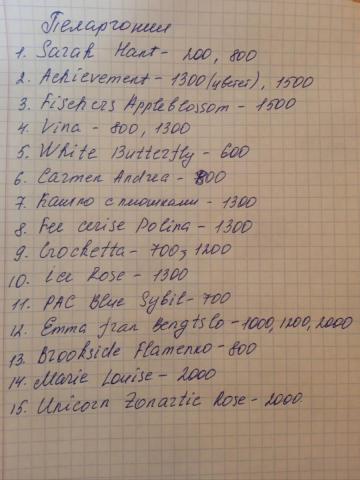 Пеларгонии
1. Sarah Hant - 200, 800
2. Achievement - 1300 (цветет), 1500
3. Fischers Appleblossom - 1500
4. Vina - 800, 1300
5. White Butterfly - 600
6. Carmen Andrea - 800
7. Кашпо с плющами - 1300
8. Fee cerise Polina - 1300
9. Crocketta - 700, 1200
10. ice Rose - 1300
11. PAC Blue Sybil - 700
12. Emma fran Bengtsbo - 1000, 1200, 2000
13. Brookside Flamenko - 800
14. Marie Louise - 2000
15. Unicorn Zonartic Rose - 2000